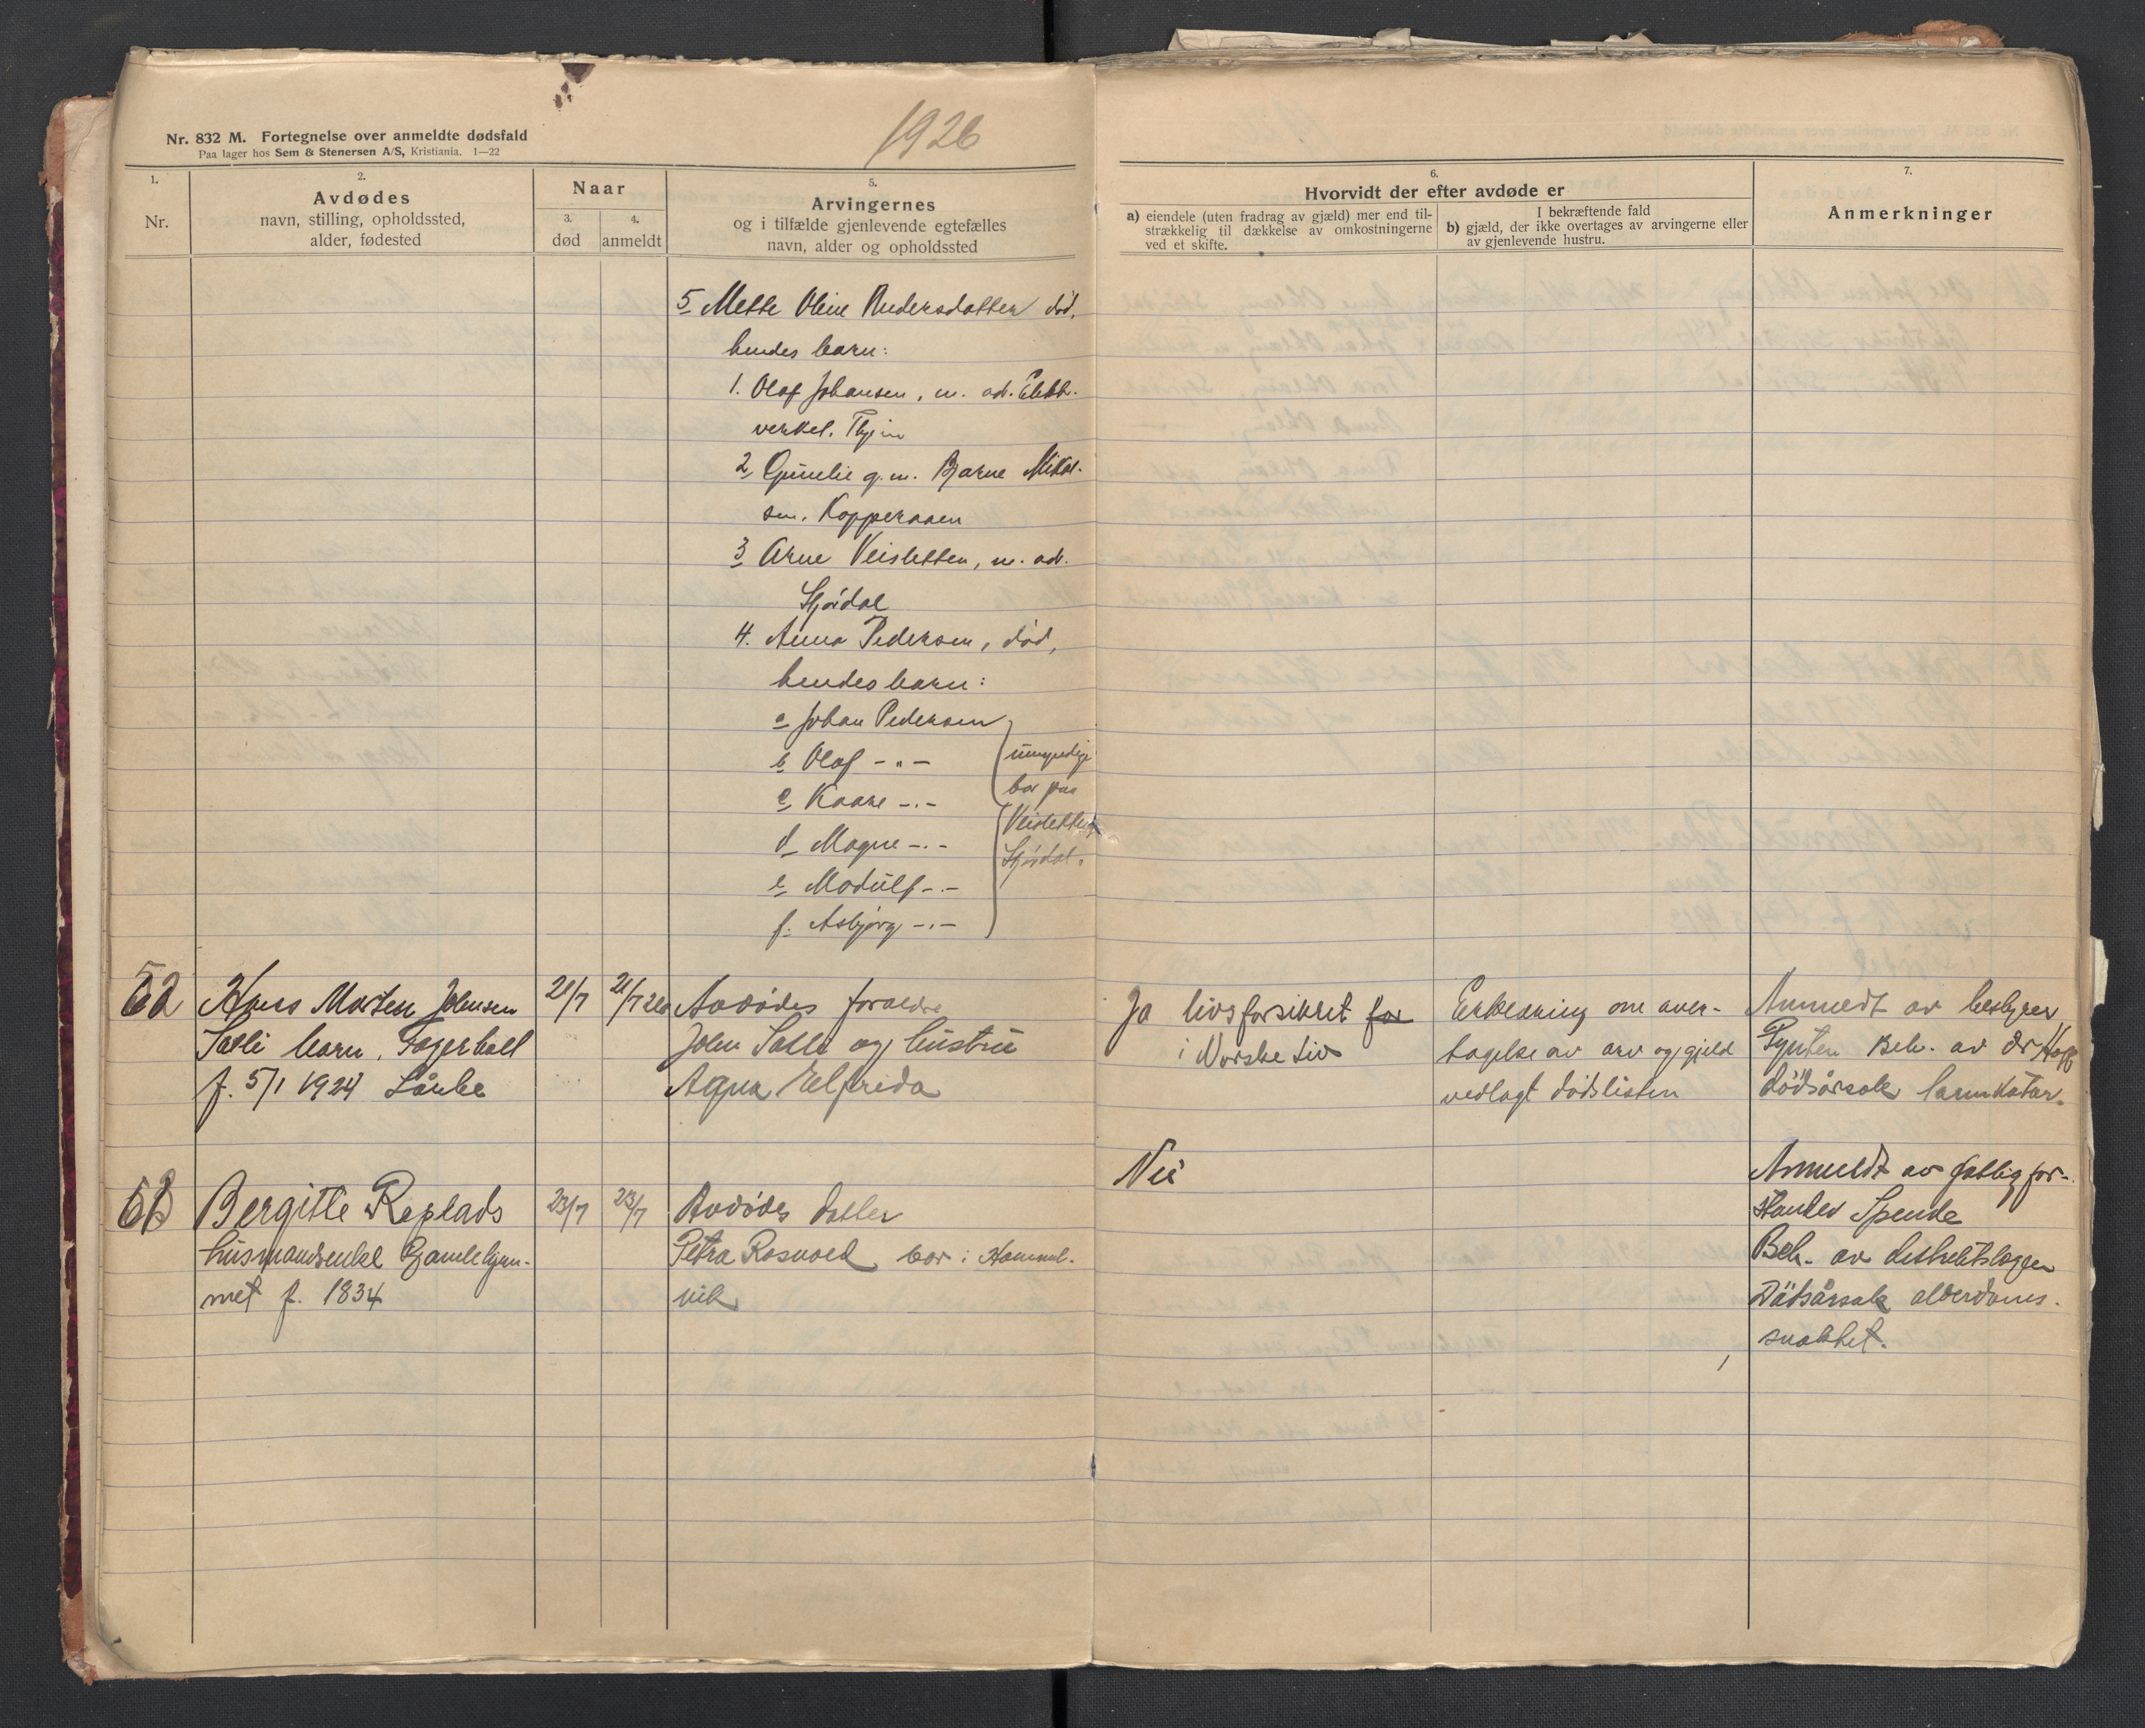 Nr. 832 M. Fortegnelse over anmeldte dødsfald
Paa lager hos Sem & Stenersen A/S, Kristiania. 1—22
1926
1.
Nr.
2.
Avdødes
navn, stilling, opholdssted,
alder, fødested
Naar
3.
død
4.
anmeldt
5.
Arvingernes
og i tilfælde gjenlevende egtefælles
navn, alder og opholdssted
6.
Hvorvidt der efter avdøde er
a) eiendele (uten fradrag av gjæld) mer end til-
strækkelig til dækkelse av omkostningerne
ved et skifte.
I bekræftende fald
b) gjæld, der ikke overtages av arvingerne eller
av gjenlevende hustru.
7.
Anmerkninger
5 Mette Oline Andersdatter død,
hendes barn:
1. Olaf Johansen, m. ad. Elektr.
verket,
2 Gunelie g.m. Bjarne Mikal-
sen, Kopperaaen
3 Arne Veisletten, m. ad.
Stjørdal
4. Anna Pedersen, død,
hendes barn:
a Johan Pedersen
b Olaf - " -
c Kaare - " -
d Magne - " -
e Modulf - " -
f. Asbjørg - " -
umyndige
bor paa
Veisletten
Stjørdal.
62 Hans Morten Johnsen 21/7 21/7 26 Avdødes forældre
Salli barn, Fagerholt John Salli og hustru
f. 5/1 1924 Lånke Agna Elfrida
Ja livsforsikret for Erklæring om over- Anmeldt av bestyrer
i Norske Liv tagelse av arv og gjeld Beh. av dr Hoff
vedlagt dødslisten dødsårsak tarmkatar.
63 Bergitte Replads 23/7 23/7 Avdødes datter
husmandsenke Gamlehjem- Petra Rosvold bor i Hommel-
met f. 1834 vik
Nei
Anmeldt av fattigfor-
stander Spende
Beh. av distriktslægen
Dødsårsak alderdoms-
svakhet.